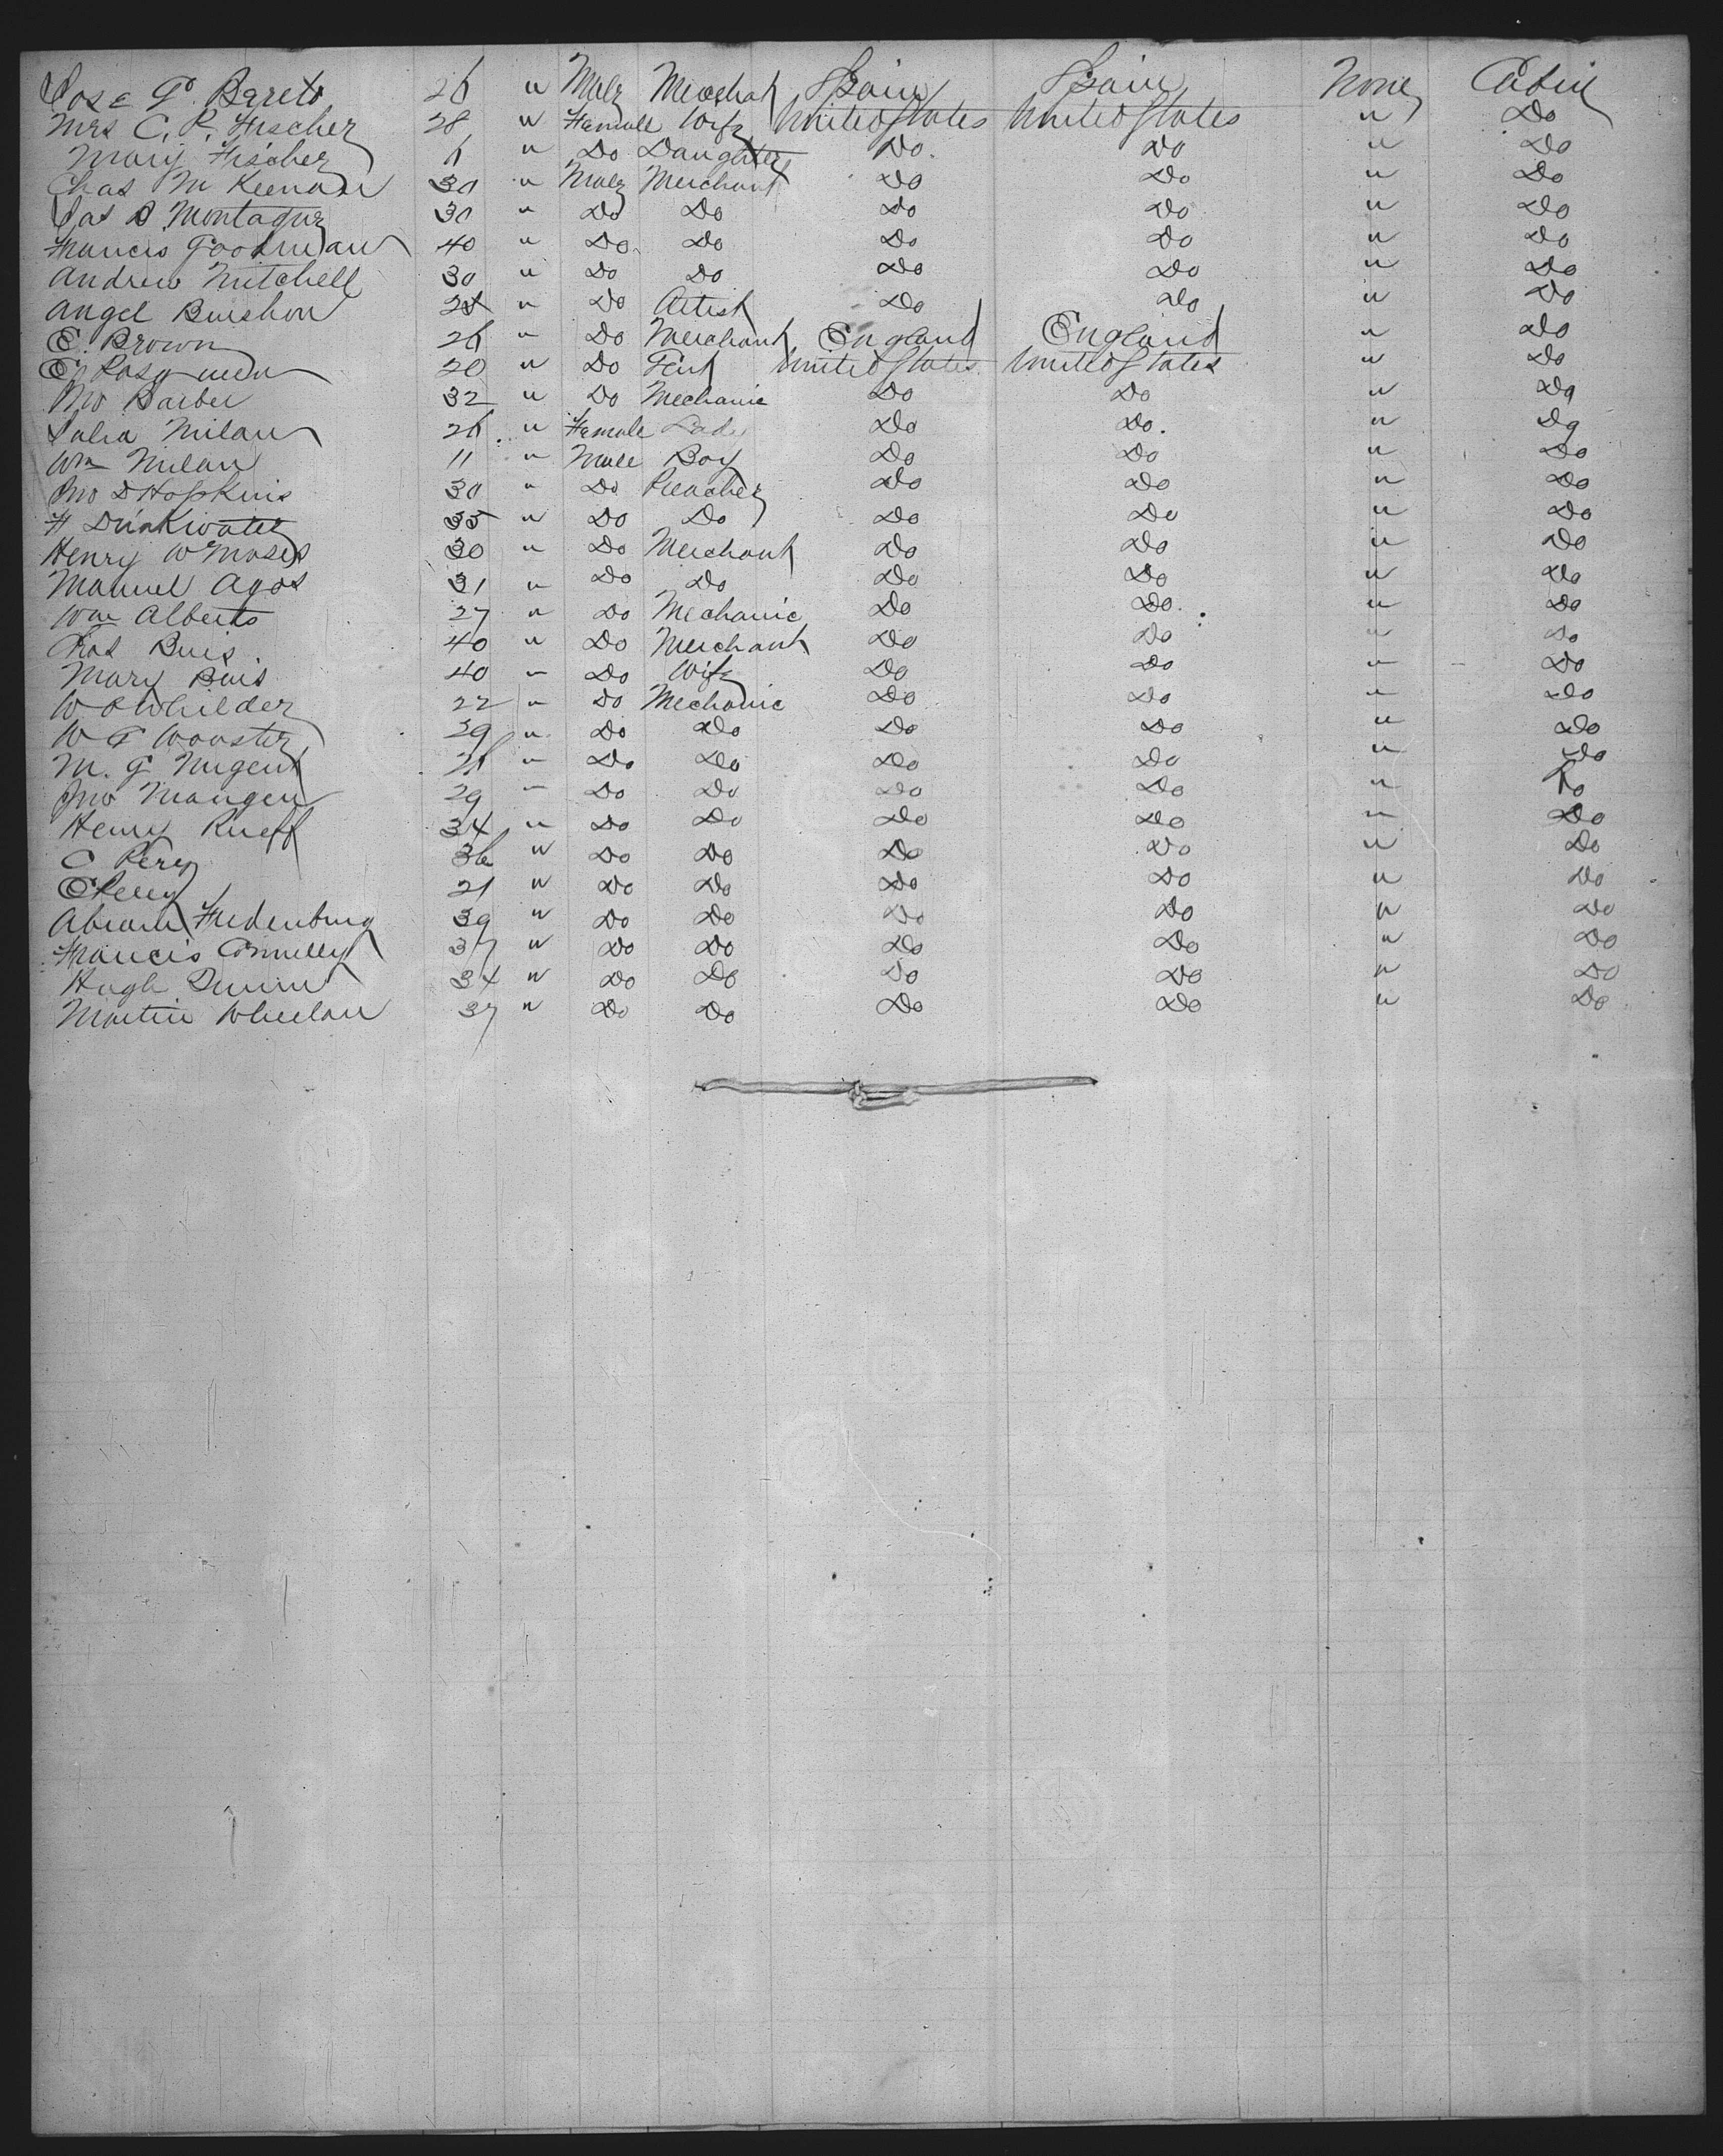 Jose G. Bareto 26 " Male Merchat Spain Spain None Cabin
Mrs C. P. Fischer 28 " Female Wife United States United States " Do
Mary Fischer 6 " Do Daughter Do. Do " Do
Chas McKeenan 30 " Male Merchant Do Do " Do
Jas Montague 30 " Do Do Do Do " Do
Francis Goodman 40 " Do Do Do Do " Do
Andrew Mitchell 30 " Do Do Do Do " Do
Angel " Do Artist Do Do " Do
E. Brown 26 " Do Merchant England England " Do
E. 20 " Do United States United States " Do
Jno Barber 32 " Do Mechanic Do Do " Do
Julia Milan 26 " Female Lady Do Do. " Do
Wm Milan 11 " Male Boy Do Do " Do
Jno D Hopkins 30 " Do Preacher Do Do " Do
H Drinkwater 35 " Do Do Do Do " Do
Henry W Moses 30 " Do Merchant Do Do " Do
Manuel Agos 31 " Do Do Do Do " Do
Wm Alberts 27 " Do Mechanic Do Do. " Do
Chas Buis 40 " Do Merchant Do Do " Do
Mary Buis 40 " Do Wife Do Do " Do
W Whilder 22 " Do Mechanic Do Do " Do
W T Wooster 29 " Do Do Do Do " Do
M. G Nugent 26 " Do Do Do Do " Do
Jno Mangen 29 " Do Do Do Do " Do
Henry Rueff 34 " Do Do Do Do " Do
C Pery 36 " Do Do Do Do " Do
E Perry 21 " Do Do Do Do " Do
Abram Fredenburg 39 " Do Do Do Do " Do
Francis Connelly 37 " Do Do Do Do " Do
Hugh Dunn 34 " Do Do Do Do " Do
Martin Wheelan 37 " Do Do Do Do " Do